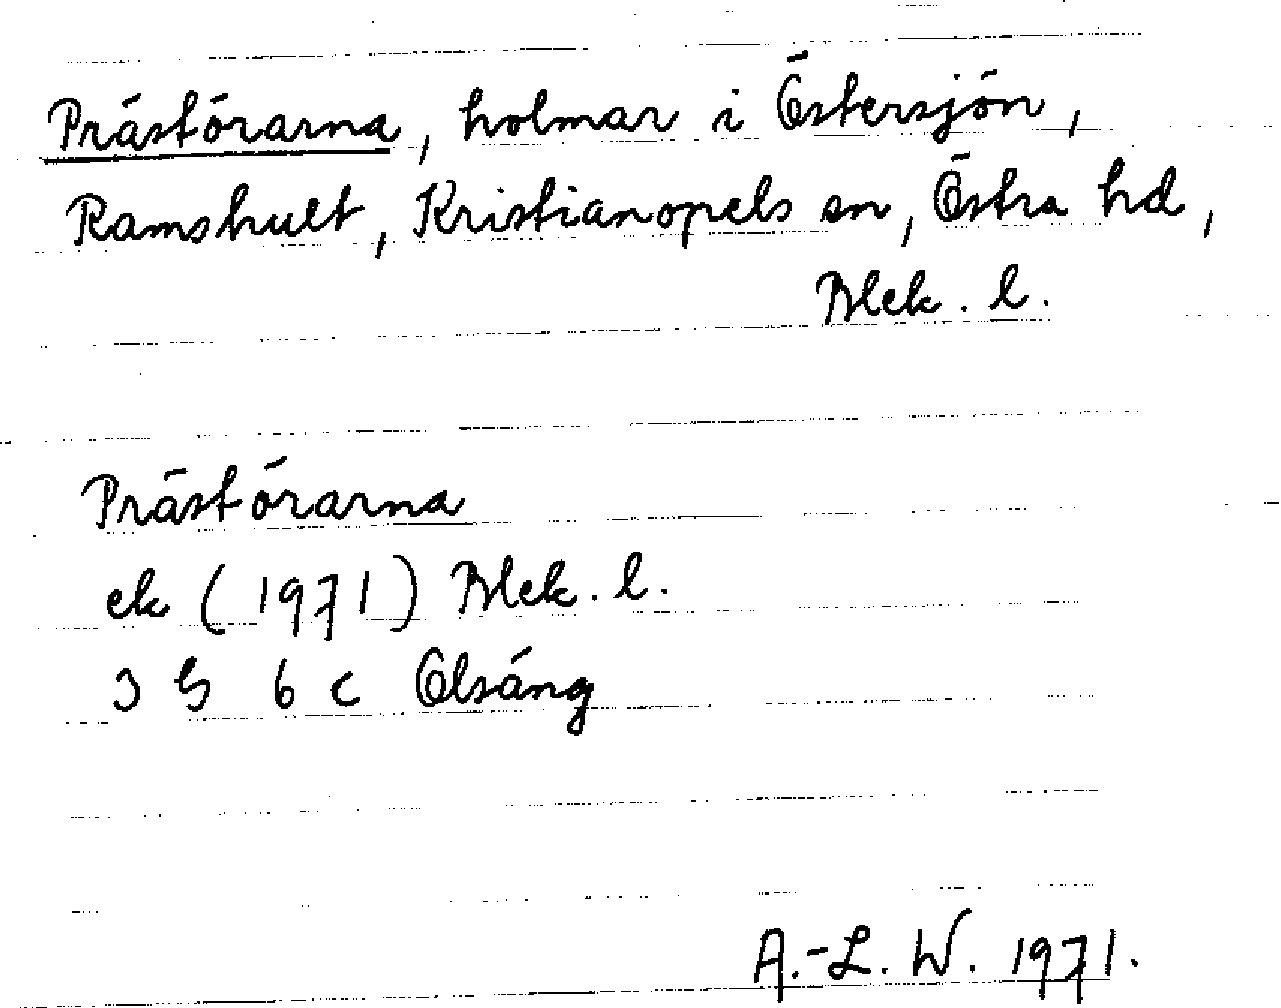 Prästörarna, holmar i Östersjön,
Ramshult, Kristianopels sn, Östra hd,
Blek. l.
Prästörarna
ek (1971) Blek. l.
3 G 6 c Olsäng
A.-L. W. 1971.